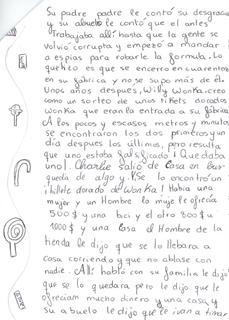 Su padre padre le contó su desgracia
y su abuelo le contó que el antes
trabajaba allí hasta que la gente se
volvió corrupta y empezó a mandar
espias para robarle la formula. Lo
que hizo es que se encerro en cuarentena
en su fábrica y no se supo más de él.
Unos años después, Willy Wonka creo
como un sorteo de unos tikets dorados
Wonka que eran la entrada a su fábrica
A los pocos y escasos metros y minutos
se encontraron los dos primeros y un
día después los últimos, pero resulta
que uno estaba falsificado! Quedaba
uno! Charlie salió de casa en bus-
queda de algo y ¡Se lo encontró un
billete dorado de WonKa! Había una
mujer y un Hombre lo muje le ofrecia
500$ y una bici y el otro 800$ u
1000$ y una casa el Hombre de la
tienda le dijo que se lo llebara a
casa corriendo y que no ablase con
nadie. Allí habló con su familia le dijo
que se lo quedara pero le dijo que le
ofrecian mucho dinero y una casa y
su abuelo le dijo que le ivan a timar